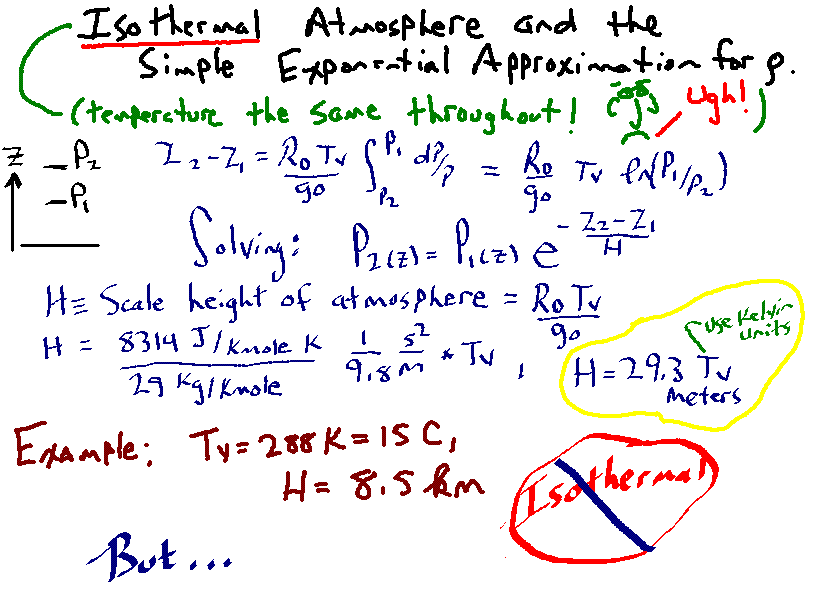 Isothermal Atmosphere and the
Simple Exponential Approximation for ρ.
(temperature the same throughout! Ugh!)
Z
P₂
P₁
Z₂-Z₁ = R₀Tv/g₀ ∫_{P₂}^{P₁} dP/P = R₀/g₀ Tv ln(P₁/P₂)
Solving: P₂(z) = P₁(z) e^{-(Z₂-Z₁)/H}
H ≡ Scale height of atmosphere = R₀Tv/g₀
H = (8314 J/kmole K)/(29 Kg/Kmole) 1/9.8 s²/m * Tv,
H = 29.3 Tv
meters
use Kelvin
units
Example: Tv = 288K = 15 C,
H = 8.5 km
Isothermal
But...